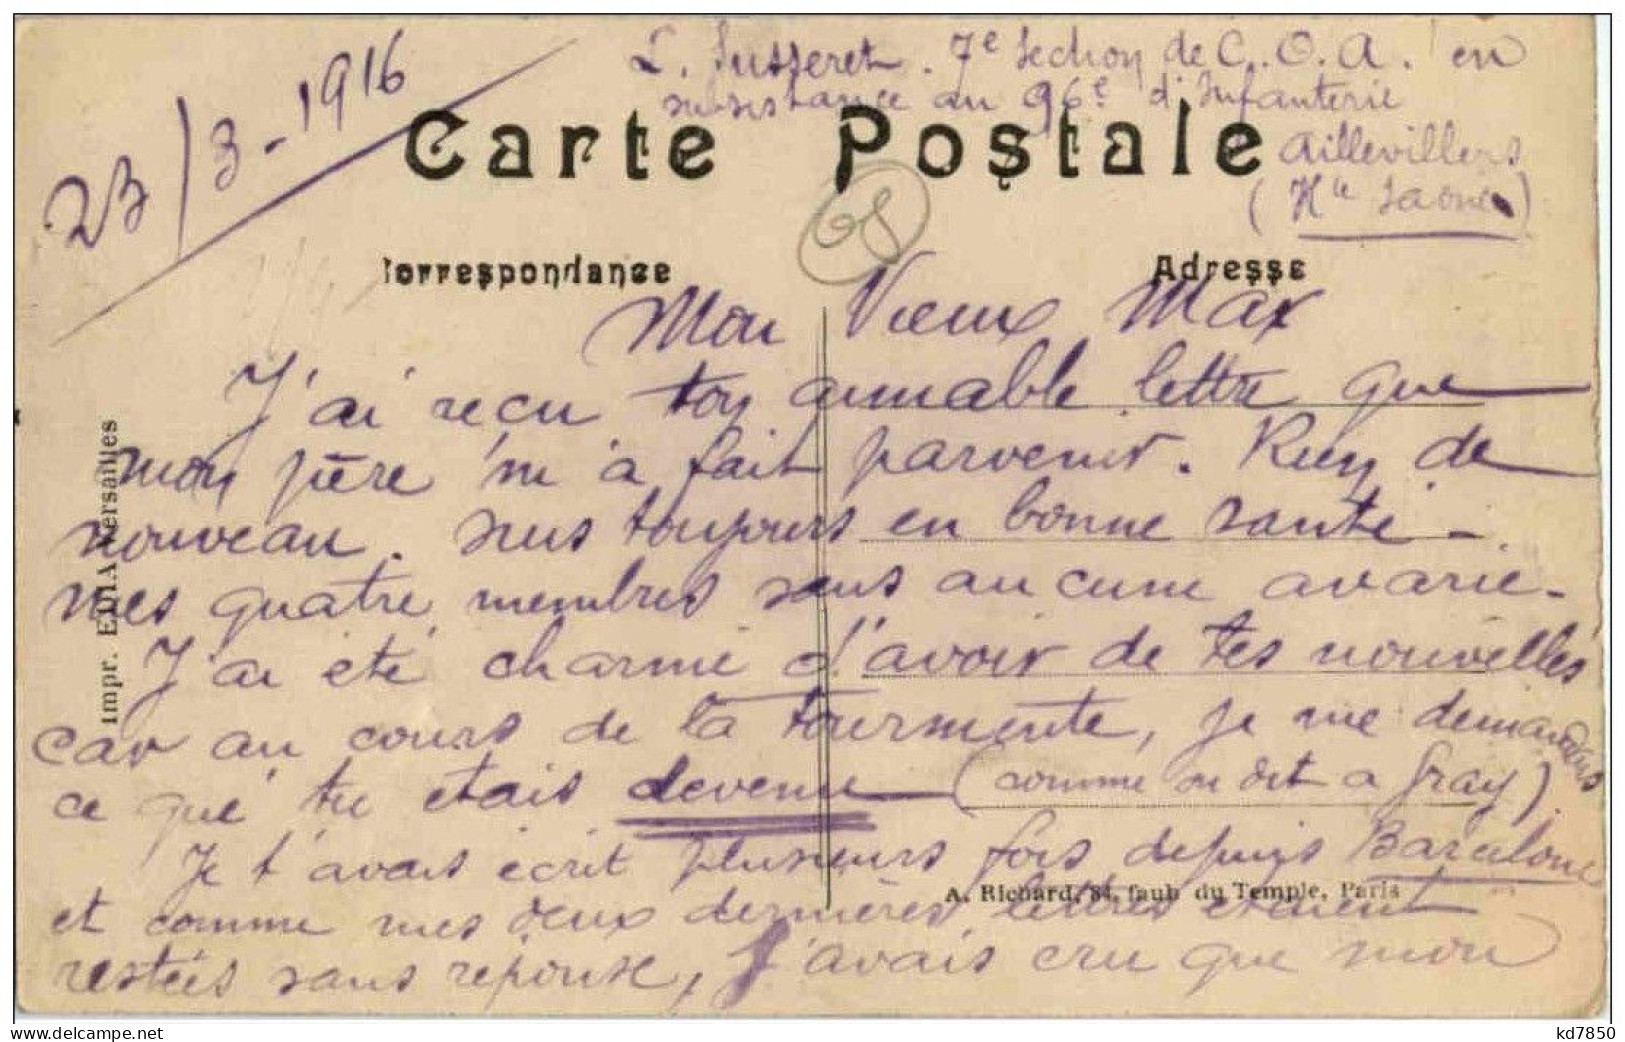 23/3-1916
L. Susseret. 7e Section de C.O.A. en
subsistance au 96e d'Infanterie
Aillevillers
(Hte Saone)
Carte Postale
Correspondance
Adresse
Mon Vieux Max
J'ai reçu ton aimable lettre que
mon père m'a fait parvenir. Rien de
nouveau. suis toujours en bonne santé -
mes quatre membres sans aucune avarie -
J'ai été charmé d'avoir de tes nouvelles
car au cours de la tourmente, je me demandais
ce que tu étais devenu (comme on dit a Gray)
Je t'avais écrit plusieurs fois depuis Barcelone
et comme mes deux dernières lettres étaient
restées sans réponse, J'avais cru que mon
A. Richard, 84, faub du Temple, Paris
Impr. EDIA Versailles
kd7850